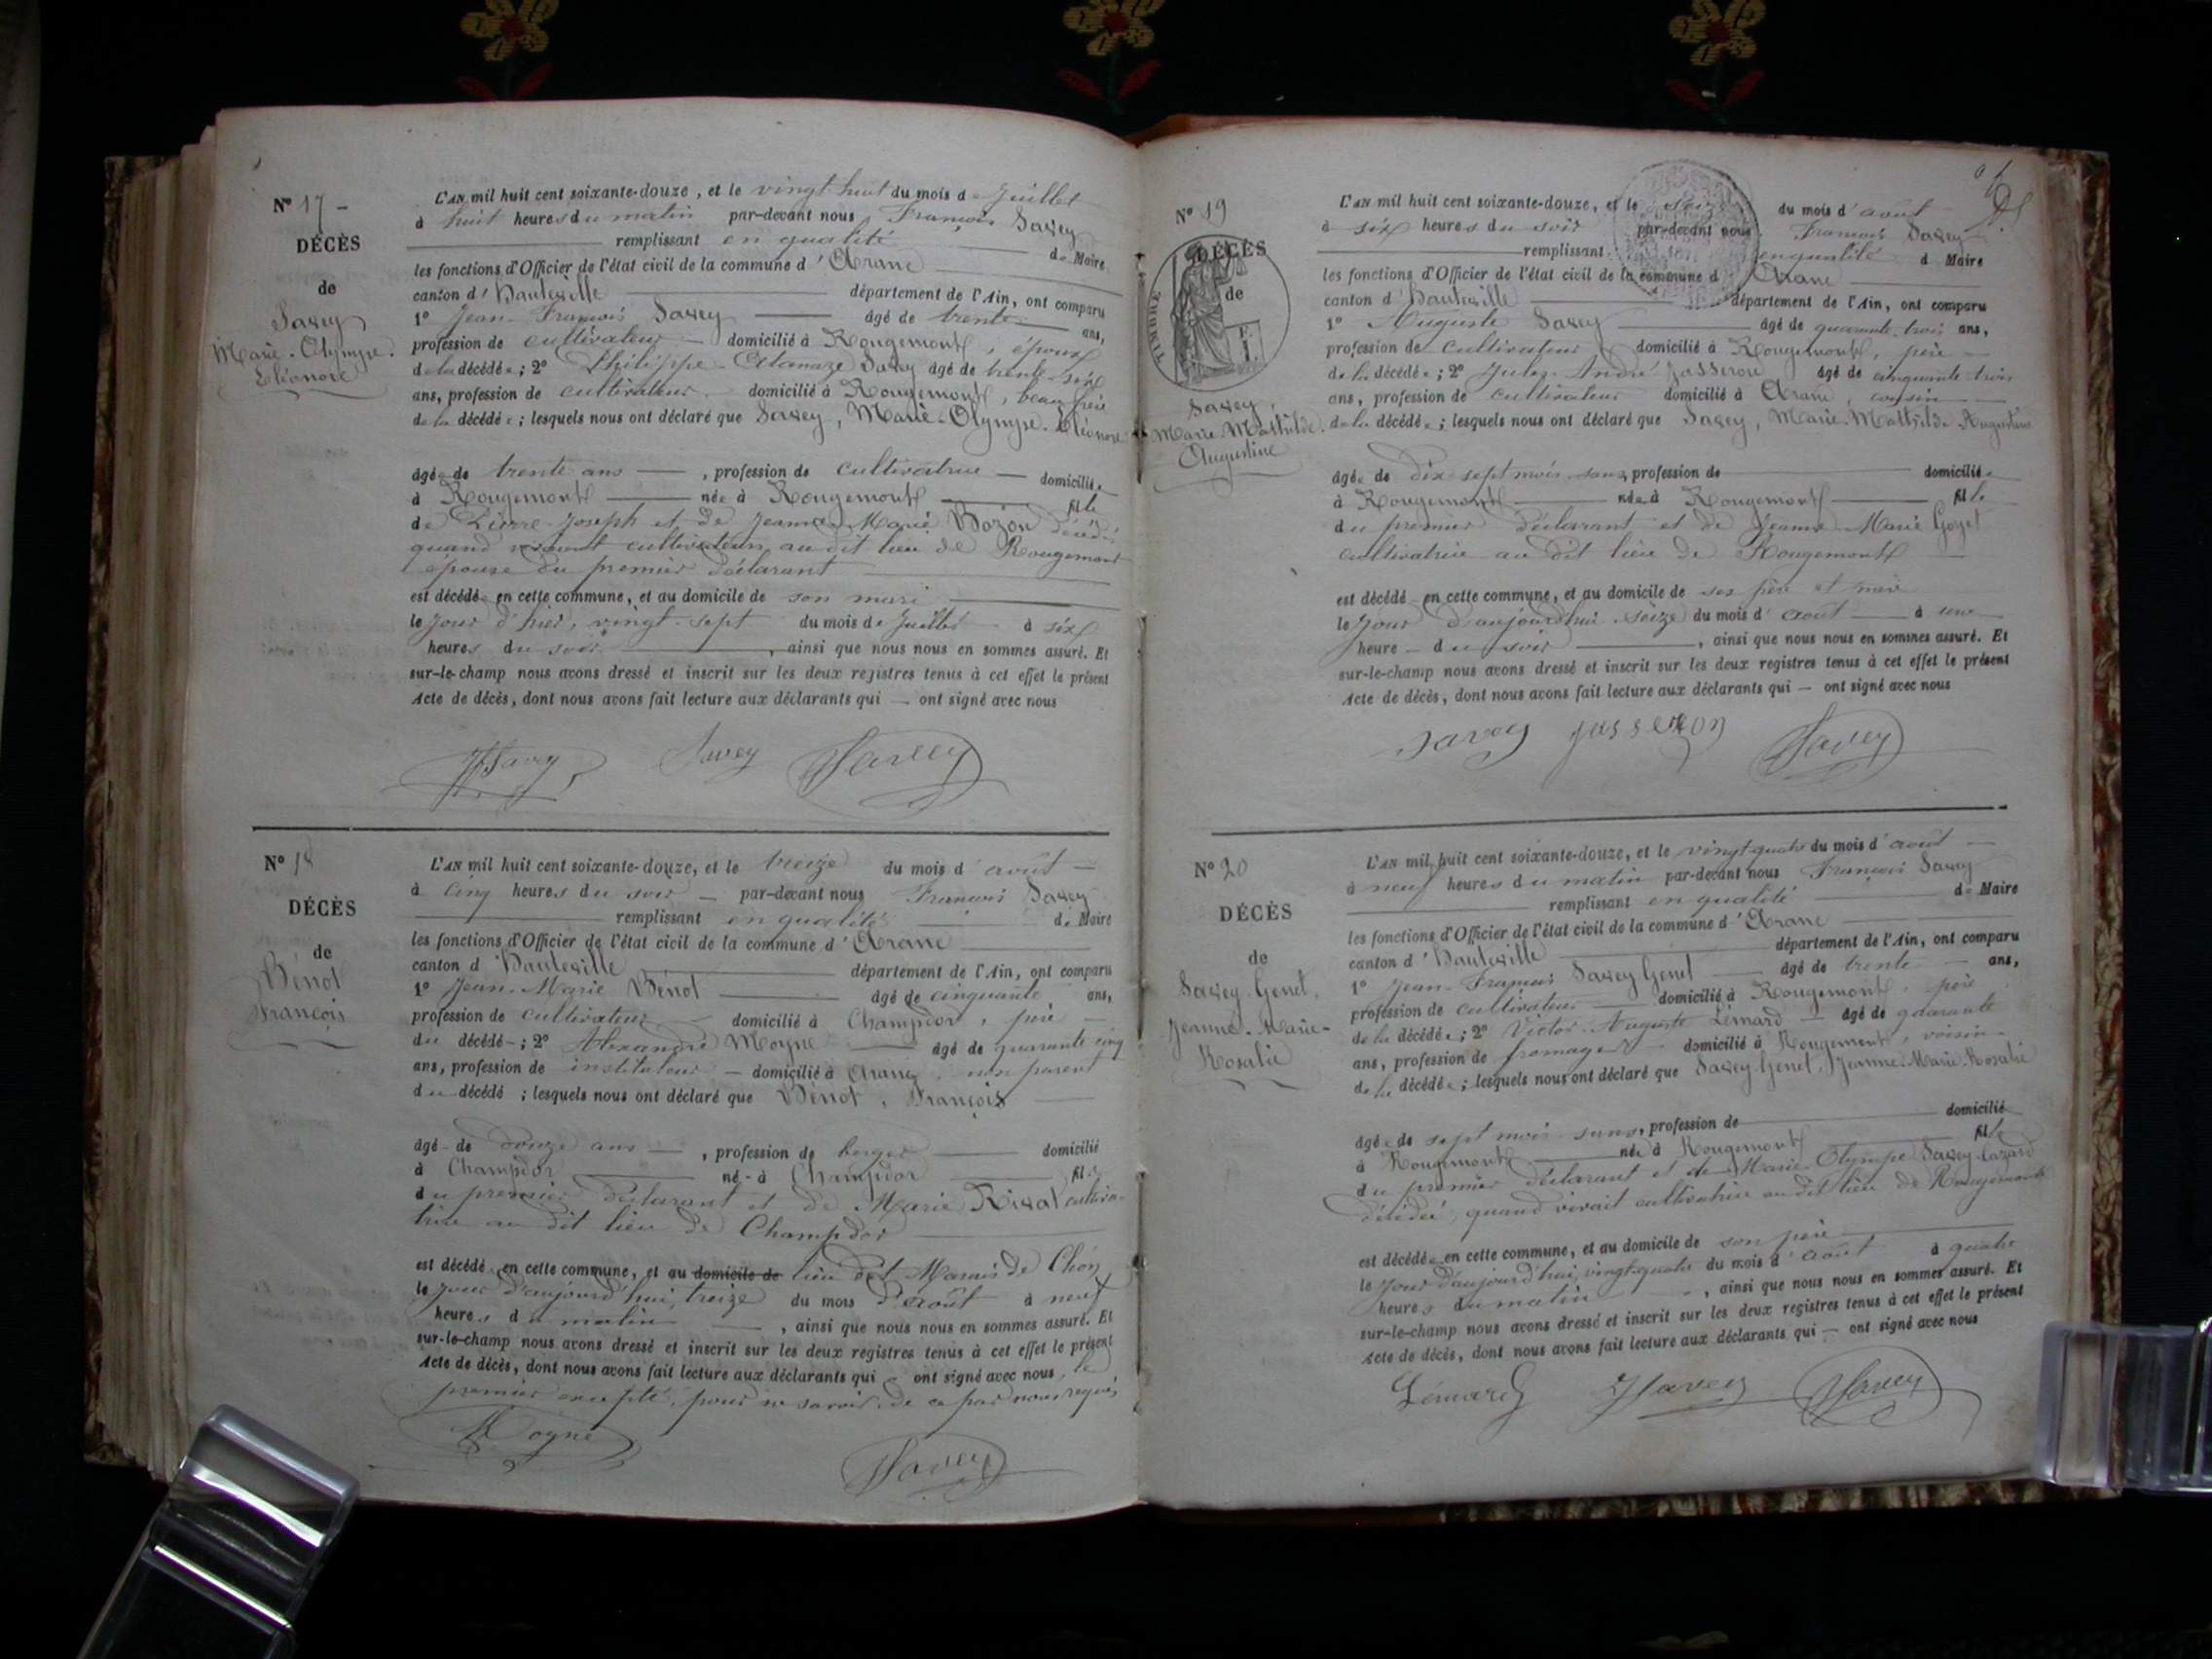 N° 17 -
DÉCÈS
de
Savey
Marie-Olympe-
Eléonore
L'AN mil huit cent soixante-douze, et le vingt huit du mois de Juillet
à huit heures du matin par-devant nous François Savey
remplissant en qualité de Maire
les fonctions d'Officier de l'état civil de la commune d'Aranc
canton d'Hauteville département de l'Ain, ont comparu
1° Jean-François Savey âgé de trente ans,
profession de cultivateur domicilié à Rougemont, époux
de la décédée; 2° Philippe Savey âgé de trente-six
ans, profession de cultivateur domicilié à Rougemont, beau frère
de la décédée; lesquels nous ont déclaré que Savey, Marie-Olympe-Eléonore
âgée de trente ans, profession de cultivatrice domiciliée
à Rougemont née à Rougemont fille
de Pierre-Joseph et de Jeanne-Marie Bozon décédés
quand vivaient cultivateurs au dit lieu de Rougemont
épouse du premier déclarant
est décédée en cette commune, et au domicile de son mari
le jour d'hier, vingt-sept du mois de Juillet à six
heures du soir, ainsi que nous nous en sommes assuré. Et
sur-le-champ nous avons dressé et inscrit sur les deux registres tenus à cet effet le présent
Acte de décès, dont nous avons fait lecture aux déclarants qui — ont signé avec nous
Savey Savey Savey
N° 18
DÉCÈS
de
Bénot
François
L'AN mil huit cent soixante-douze, et le treize du mois d'août
à cinq heures du soir par-devant nous François Savey
remplissant en qualité de Maire
les fonctions d'Officier de l'état civil de la commune d'Aranc
canton d'Hauteville département de l'Ain, ont comparu
1° Jean-Marie Bénot âgé de cinquante ans,
profession de cultivateur domicilié à Champdor, père
du décédé; 2° Alexandre Moyne âgé de quarante cinq
ans, profession de instituteur domicilié à Aranc, non parent
du décédé; lesquels nous ont déclaré que Bénot, François
âgé de douze ans, profession de berger domicilié
à Champdor né à Champdor fils
du premier déclarant et de Marie Rival cultiva-
trice au dit lieu de Champdor
est décédé en cette commune, et au domicile de lieu dit Marais de Chon
le jour d'aujourd'hui, treize du mois d'août à neuf
heures du matin, ainsi que nous nous en sommes assuré. Et
sur-le-champ nous avons dressé et inscrit sur les deux registres tenus à cet effet le présent
Acte de décès, dont nous avons fait lecture aux déclarants qui ont signé avec nous, le
premier excepté, pour ne savoir, de ce par nous requis
Moyne Savey
N° 19
DÉCÈS
de
TIMBRE
Savey,
Marie-Mathilde-
Augustine
L'AN mil huit cent soixante-douze, et le seize du mois d'août
à six heures du soir par-devant nous François Savey
remplissant en qualité d Maire
les fonctions d'Officier de l'état civil de la commune d'Aranc
canton d'Hauteville département de l'Ain, ont comparu
1° Auguste Savey âgé de quarante-trois ans,
profession de cultivateur domicilié à Rougemont, père
de la décédée; 2° Jules-André Jasseron âgé de cinquante-trois
ans, profession de cultivateur domicilié à Aranc, cousin
de la décédée; lesquels nous ont déclaré que Savey, Marie-Mathilde Augustine
âgée de dix sept mois, sans profession de domiciliée
à Rougemont née à Rougemont fille
du premier déclarant et de Jeanne-Marie Goyet
cultivatrice au dit lieu de Rougemont
est décédé en cette commune, et au domicile de ses père et mère
le jour d'aujourd'hui seize du mois d'août à une
heure du soir, ainsi que nous nous en sommes assuré. Et
sur-le-champ nous avons dressé et inscrit sur les deux registres tenus à cet effet le présent
Acte de décès, dont nous avons fait lecture aux déclarants qui — ont signé avec nous
savey jasseron Savey
N° 20
DÉCÈS
de
Savey-Genet,
Jeanne-Marie-
Rosalie
L'AN mil huit cent soixante-douze, et le vingt-quatre du mois d'août
à neuf heures du matin par-devant nous François Savey
remplissant en qualité de Maire
les fonctions d'Officier de l'état civil de la commune d'Aranc
canton d'Hauteville département de l'Ain, ont comparu
1° Jean-François Savey Genet âgé de trente ans,
profession de cultivateur domicilié à Rougemont, père
de la décédée; 2° Victor-Auguste Lémard âgé de quarante
ans, profession de fromager domicilié à Rougemont, voisin
de la décédée; lesquels nous ont déclaré que Savey-Genet, Jeanne-Marie-Rosalie
âgée de sept mois sans, profession de domicilié
à Rougemont née à Rougemont fille
du premier déclarant et de Marie-Olympe Savey-Lazard
décédée, quand vivait cultivatrice au dit lieu de Rougemont
est décédée en cette commune, et au domicile de son père
le jour d'aujourd'hui, vingt-quatre du mois d'août à quatre
heures du matin, ainsi que nous nous en sommes assuré. Et
sur-le-champ nous avons dressé et inscrit sur les deux registres tenus à cet effet le présent
Acte de décès, dont nous avons fait lecture aux déclarants qui — ont signé avec nous
Lémard Savey Savey